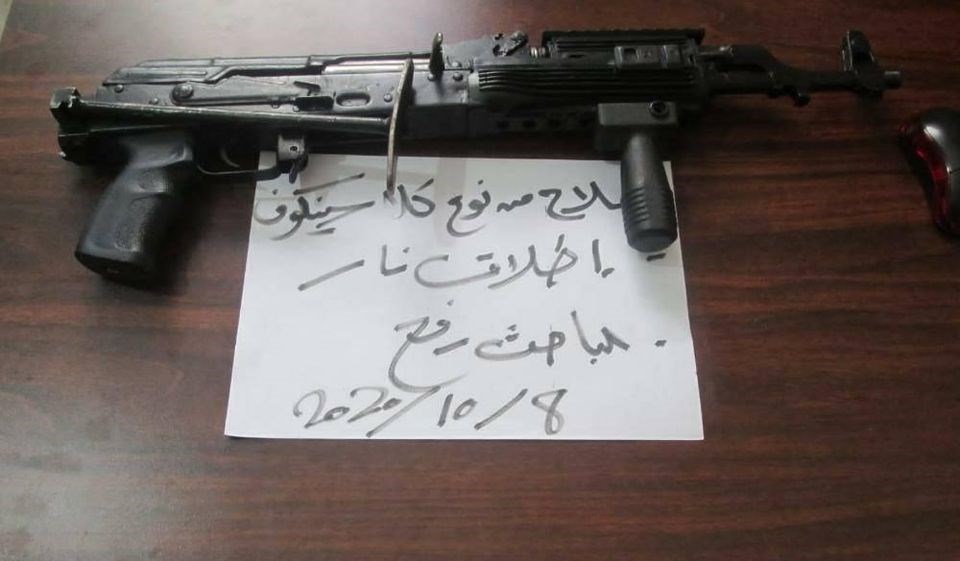 سلاح من نوع كلاسينكوف
إطلاق نار
مباحث رفح
2020/10/8